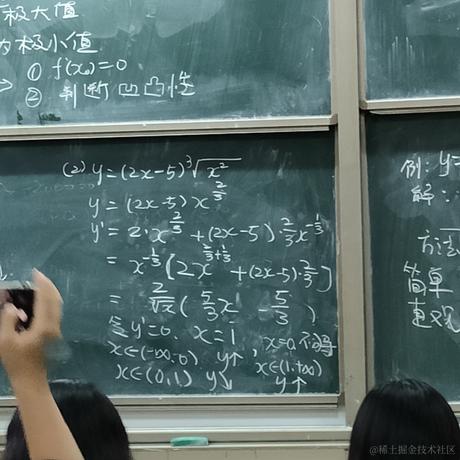 极大值
为极小值
① f(x₀)=0
② 判断凹凸性
(2) y=(2x-5)³√x²
y=(2x-5)x^{2/3}
y'=2·x^{2/3}+(2x-5)·2/3 x^{-1/3}
= x^{-1/3}[2x^{2/3+1/3}+(2x-5)·2/3]
= 2/³√x (5/3 x - 5/3)
令y'=0. x=1, x=0不可导
x∈(-∞,0) y↑
x∈(0,1) y↓
x∈(1,+∞)
y↑
例: y=
解:
方法
简单
直观
@稀土掘金技术社区